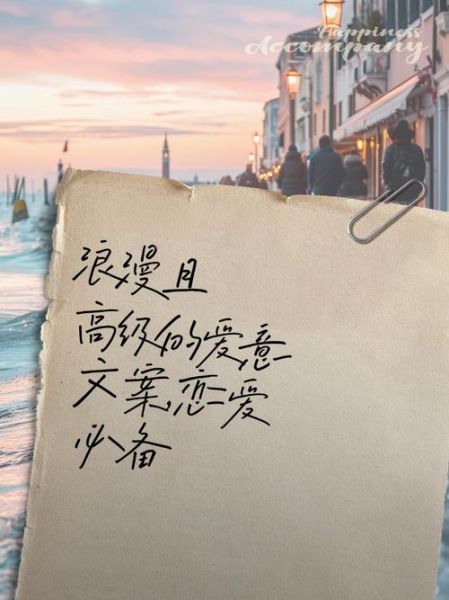 Happiness
Accompany
浪漫且
高级的爱意
文案,恋爱
必备